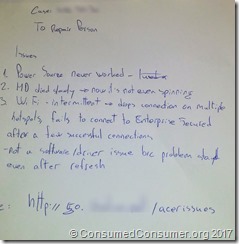 Case:
To Repair Person
Issues
1. Power Source never worked -
2. HD died slowly → now it's not even spinning
3. Wi Fi - intermittent → drops connection on multiple
hotspots, fails to connect to Enterprise Secured
after a few successful connections.
- not a software/driver issue b/c problem
even after refresh
http:// 50. /acerissues
© ConsumedConsumer.org 2017